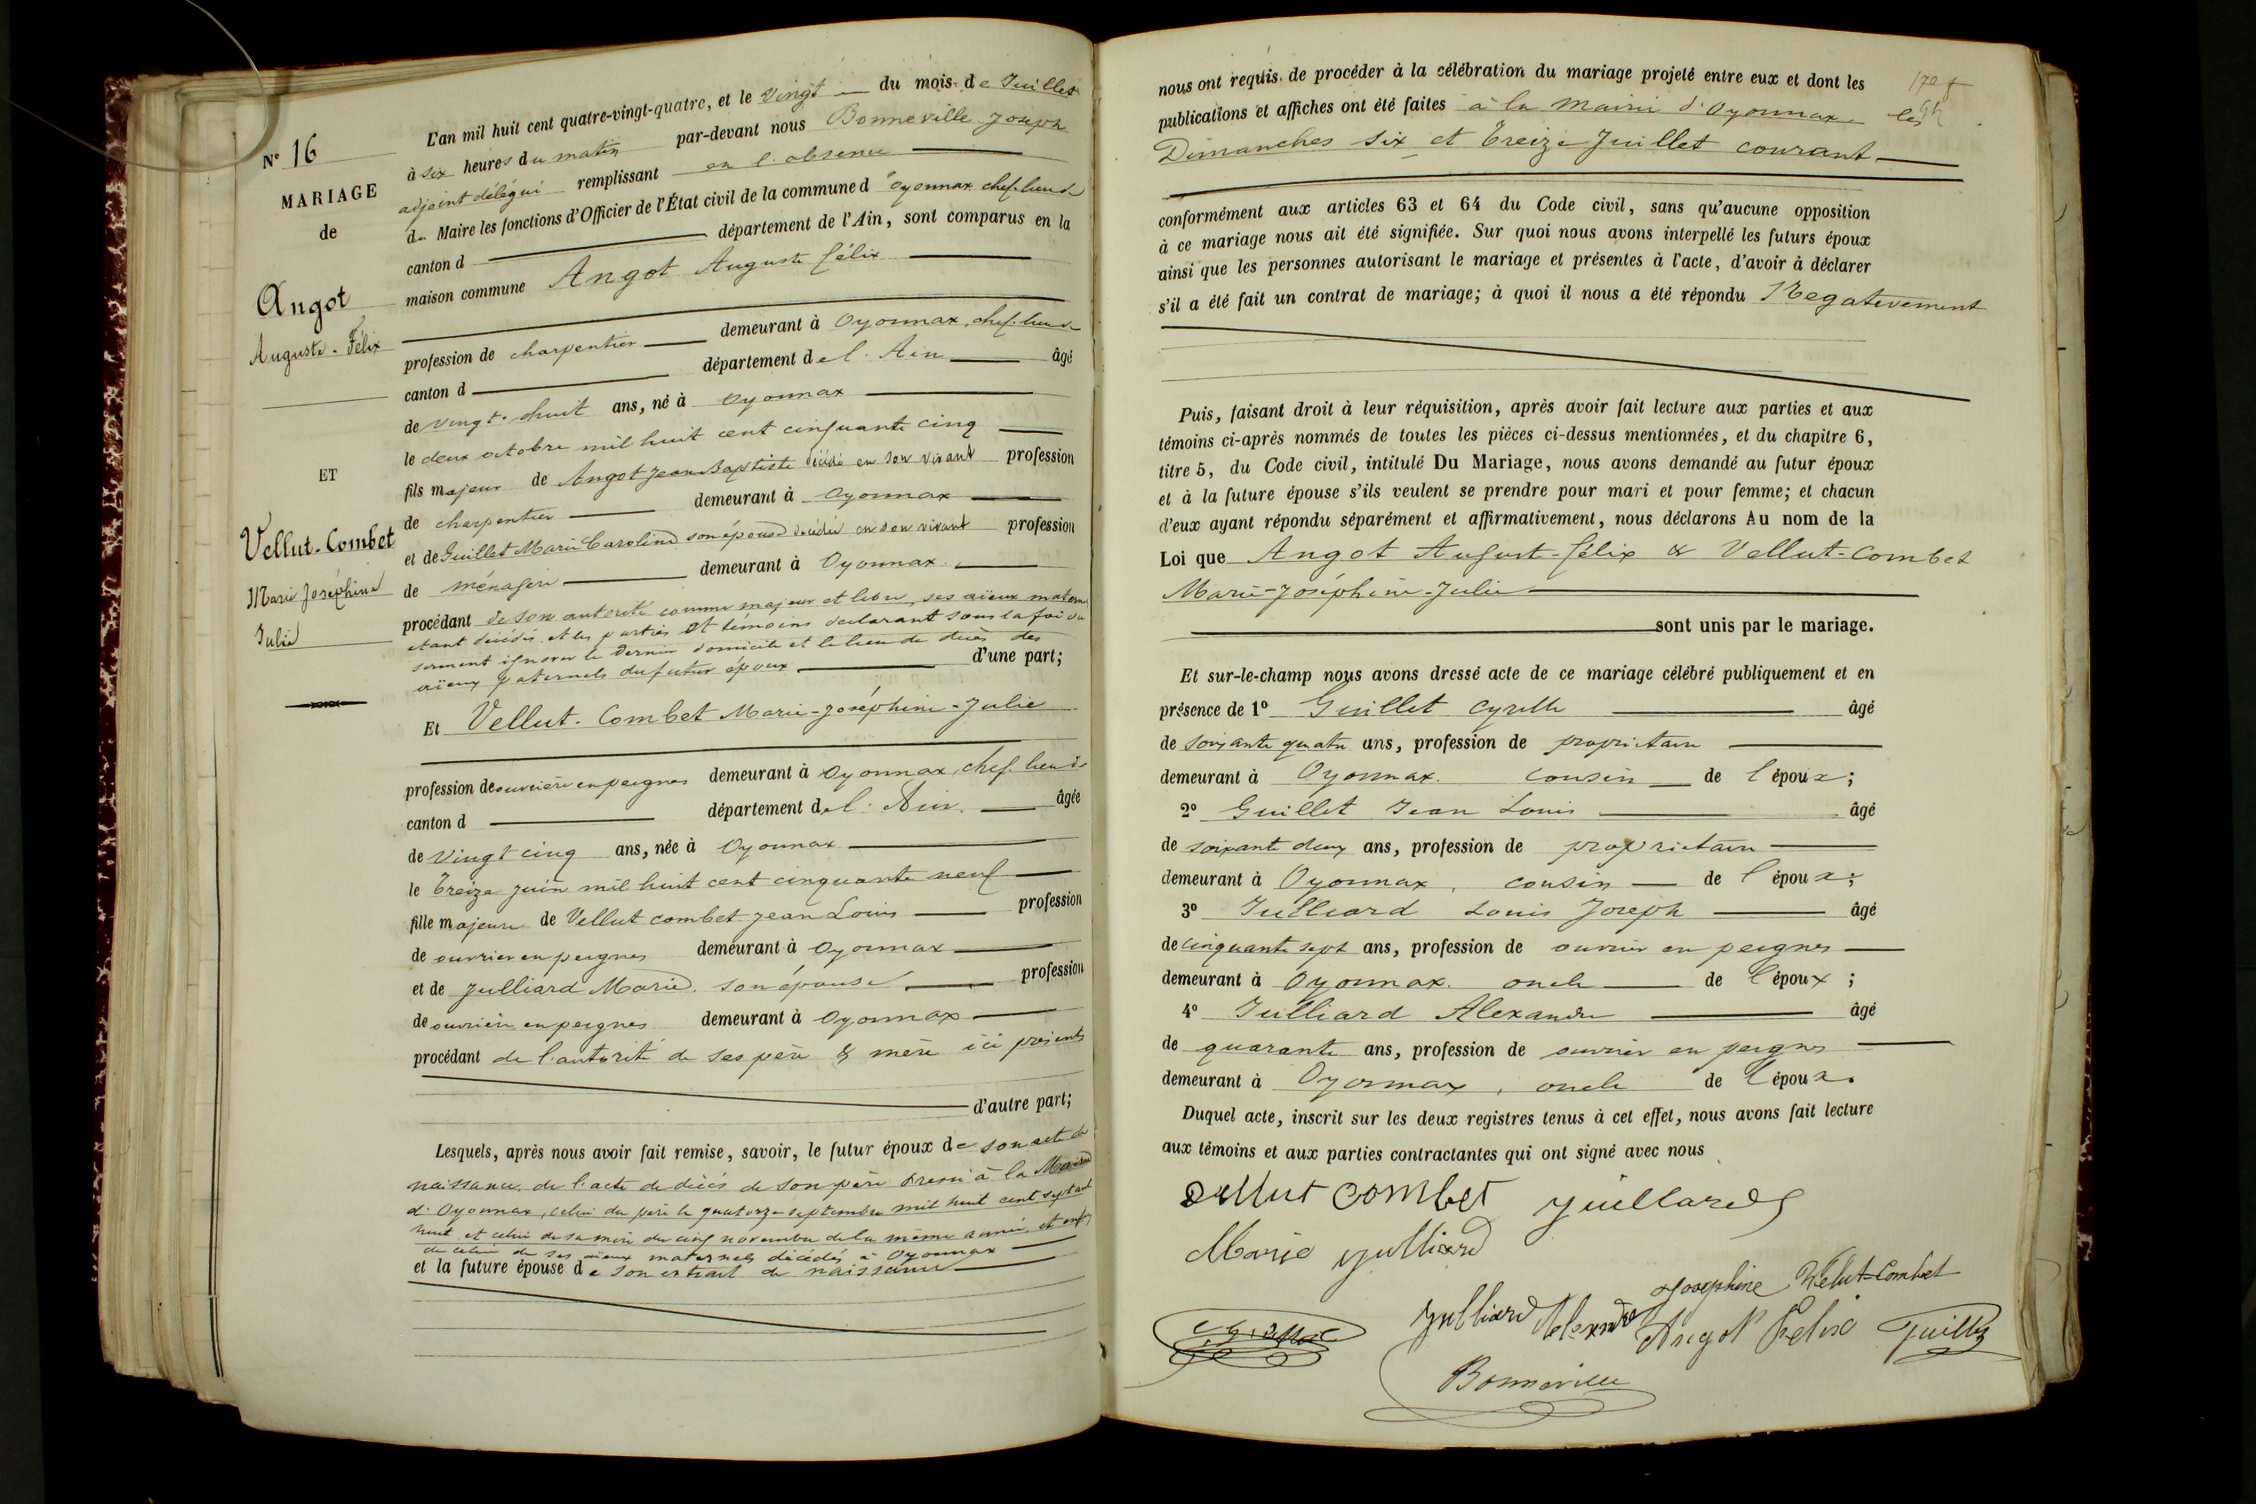 N° 16
MARIAGE
de
Angot
Auguste-Félix
ET
Vellut-Combet
Marie Joséphine
Julie
L'an mil huit cent quatre-vingt-quatre, et le vingt du mois de Juillet
à six heures du matin par-devant nous Bonneville Joseph
adjoint délégué remplissant en l'absence
du Maire les fonctions d'Officier de l'État civil de la commune d'Oyonnax chef-lieu de
canton d département de l'Ain, sont comparus en la
maison commune Angot Auguste félix
profession de charpentier demeurant à Oyonnax, chef-lieu de
canton d département de l'Ain âgé
de vingt-huit ans, né à Oyonnax
le deux octobre mil huit cent cinquante cinq
fils majeur de Angot Jean Baptiste décédé en son vivant profession
de charpentier demeurant à Oyonnax
et de Guillet Marie Caroline son épouse décédée en son vivant profession
de ménagère demeurant à Oyonnax
procédant de son autorité comme majeur et libre, ses aïeux matern
étant décédés et les parties et témoins déclarant sous la foi du
serment ignorer le dernier domicile et le lieu de décès des
aïeux paternels du futur époux d'une part;
Et Vellut-Combet Marie-Joséphine-Julie
profession de ouvrière en peignes demeurant à Oyonnax, chef-lieu de
canton d département de l'Ain. âgée
de vingt cinq ans, née à Oyonnax
le treize juin mil huit cent cinquante neuf
fille majeure de Vellut combet Jean Louis profession
de ouvrier en peignes demeurant à Oyonnax
et de Julliard Marie. son épouse profession
de ouvrière en peignes demeurant à Oyonnax
procédant de l'autorité de ses père & mère ici présents
d'autre part;
Lesquels, après nous avoir fait remise, savoir, le futur époux de son acte de
naissance, de l'acte de décès de son père dressé à la Mairie
d'Oyonnax, celui du père le quatorze septembre mil huit cent septant
huit et celui de sa mère du cinq novembre de la même année, et enfin
de celui de ses aïeux maternels décédés à Oyonnax
et la future épouse de son extrait de naissance
nous ont requis de procéder à la célébration du mariage projeté entre eux et dont les
publications et affiches ont été faites à la Mairie d'Oyonnax les
Dimanches six et treize Juillet courant
conformément aux articles 63 et 64 du Code civil, sans qu'aucune opposition
à ce mariage nous ait été signifiée. Sur quoi nous avons interpellé les futurs époux
ainsi que les personnes autorisant le mariage et présentes à l'acte, d'avoir à déclarer
s'il a été fait un contrat de mariage; à quoi il nous a été répondu Negativement
Puis, faisant droit à leur réquisition, après avoir fait lecture aux parties et aux
témoins ci-après nommés de toutes les pièces ci-dessus mentionnées, et du chapitre 6,
titre 5, du Code civil, intitulé Du Mariage, nous avons demandé au futur époux
et à la future épouse s'ils veulent se prendre pour mari et pour femme; et chacun
d'eux ayant répondu séparément et affirmativement, nous déclarons Au nom de la
Loi que Angot August-félix & Vellut-Combet
Marie-Joséphine-Julie
sont unis par le mariage.
Et sur-le-champ nous avons dressé acte de ce mariage célébré publiquement et en
présence de 1° Guillet Cyrille âgé
de soixante quatre ans, profession de propriétaire
demeurant à Oyonnax. cousin de l'époux;
2° Guillet Jean Louis âgé
de soixante deux ans, profession de propriétaire
demeurant à Oyonnax, cousin de l'époux;
3° Julliard Louis Joseph âgé
de cinquante sept ans, profession de ouvrier en peignes
demeurant à Oyonnax. oncle de l'époux;
4° Julliard Alexandre âgé
de quarante ans, profession de ouvrier en peignes
demeurant à Oyonnax, oncle de l'époux.
Duquel acte, inscrit sur les deux registres tenus à cet effet, nous avons fait lecture
aux témoins et aux parties contractantes qui ont signé avec nous
Vellut Combet Juillard
Marie Julliard
Josephine Velut-Combet
Julliard Alexandre Angot Felix Guillet
Bonneville